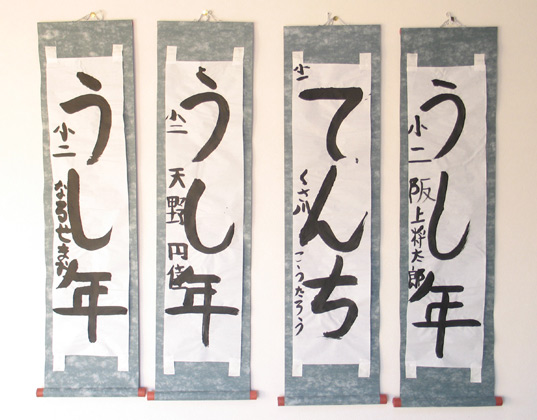 うし年
小二
阪上将太郎
てんち
小一
くさ川
こうたろう
うし年
小二
天野 円
うし年
小二
なるせま